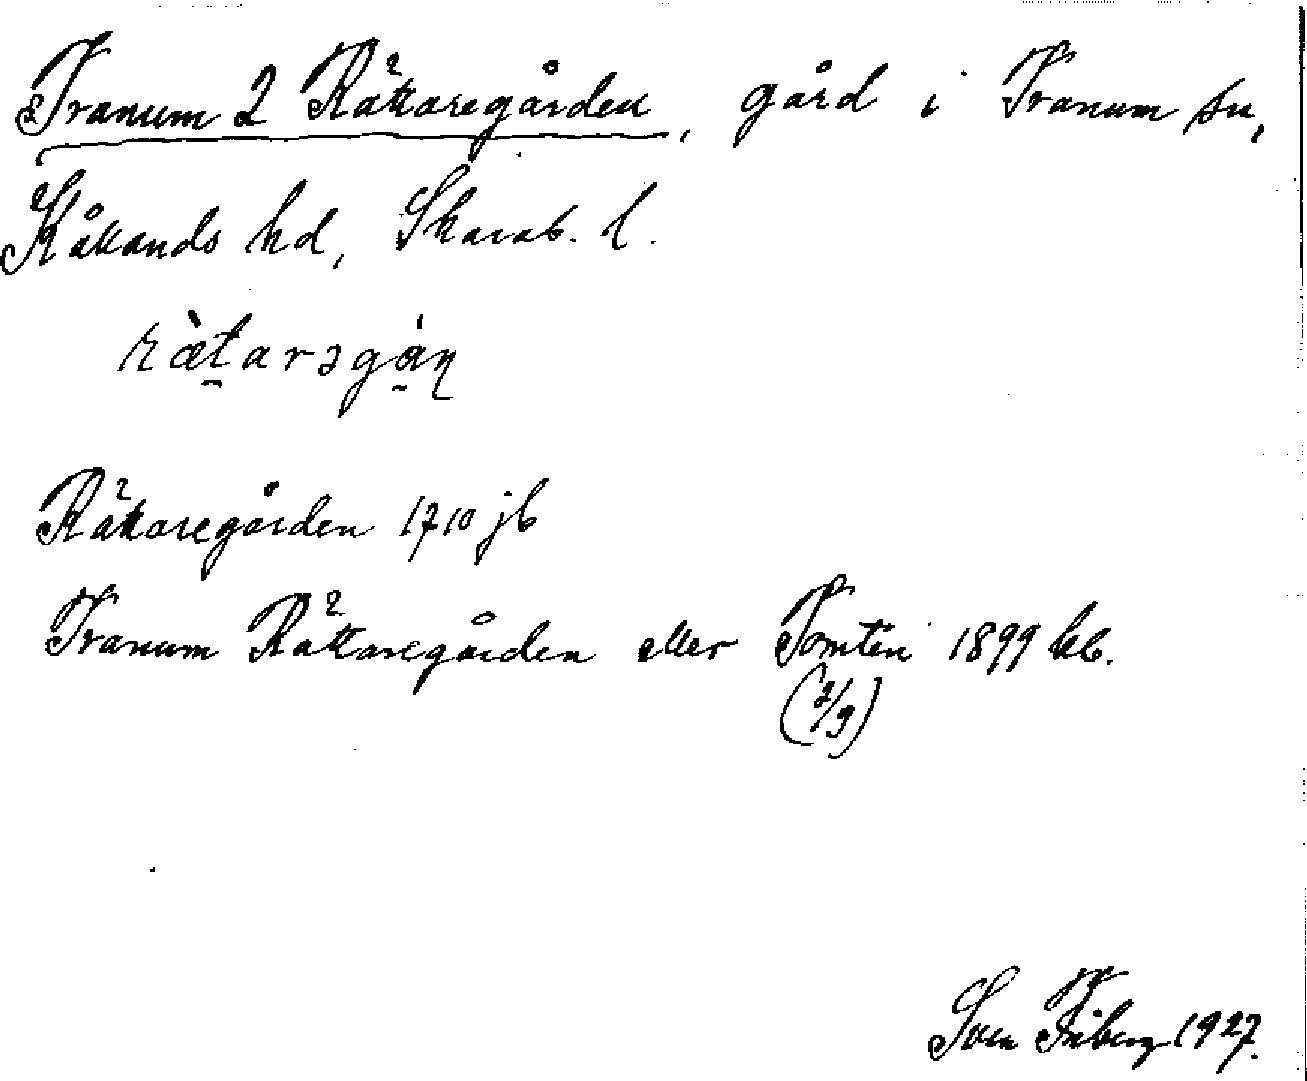 Tranum 2 Rättaregården, gård i Tranum sn,
Kållands hd, Skarab. l.
rætarəgán
Rättaregården 1710 jb
Tranum Rättaregården eller Tomten 1899 kb.
(2/9)
Sven Friberg 1927.